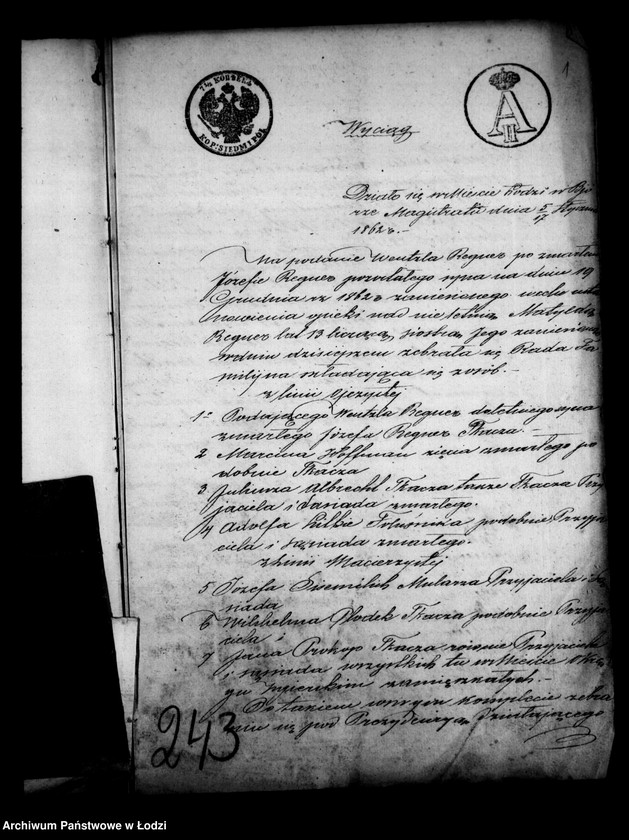 7½ KOPĔEK
KOP: SIEDM I PÓŁ
A
II
1
Wyciąg
Działo się w Mieście Łodzi w Biu-
rze Magistratu dnia 5/17 Stycznia
1862 r. -
Na podanie Wentzla Regner po zmarłym
Józefie Regner pozostałego syna na dniu 19
Grudnia 1862 r zamienowego w celu usta
nowienia opieki nad nie letnią Matyldą
Regner lat 13 liczącą, siostrą jego zamienioną
w dniu dzisiejszem zebrała się Rada Fa
milijna składająca się z osób. -
z linii Ojczystej
1- Podającego Wentzla Regner doletniego syna
zmarłego Józefa Regner Tkacza. -
2 Marcina Hoffman zięcia zmarłego po
dobnie Tkacza
3 Juliusza Albrecht Tkacza także Tkacza Przy
jaciela i Sąsiada zmarłego.
4 Adolfa podobnie Przyja
ciela i sąsiada zmarłego.
z linii Macierzystej
5 Józefa Mularza Przyjaciela i Są
siada
6 Wilhelma Plodek Tkacza podobnie Przyja
ciela i
7 Jana Prokop Tkacza równie Przyjaciela
i sąsiada wszystkich tu w Mieście Okrę
gu Zgierskim zamięszkałych. -
Po takiem w komplecie zebra
niu się pod Prezydencyą
243
Archiwum Państwowe w Łodzi